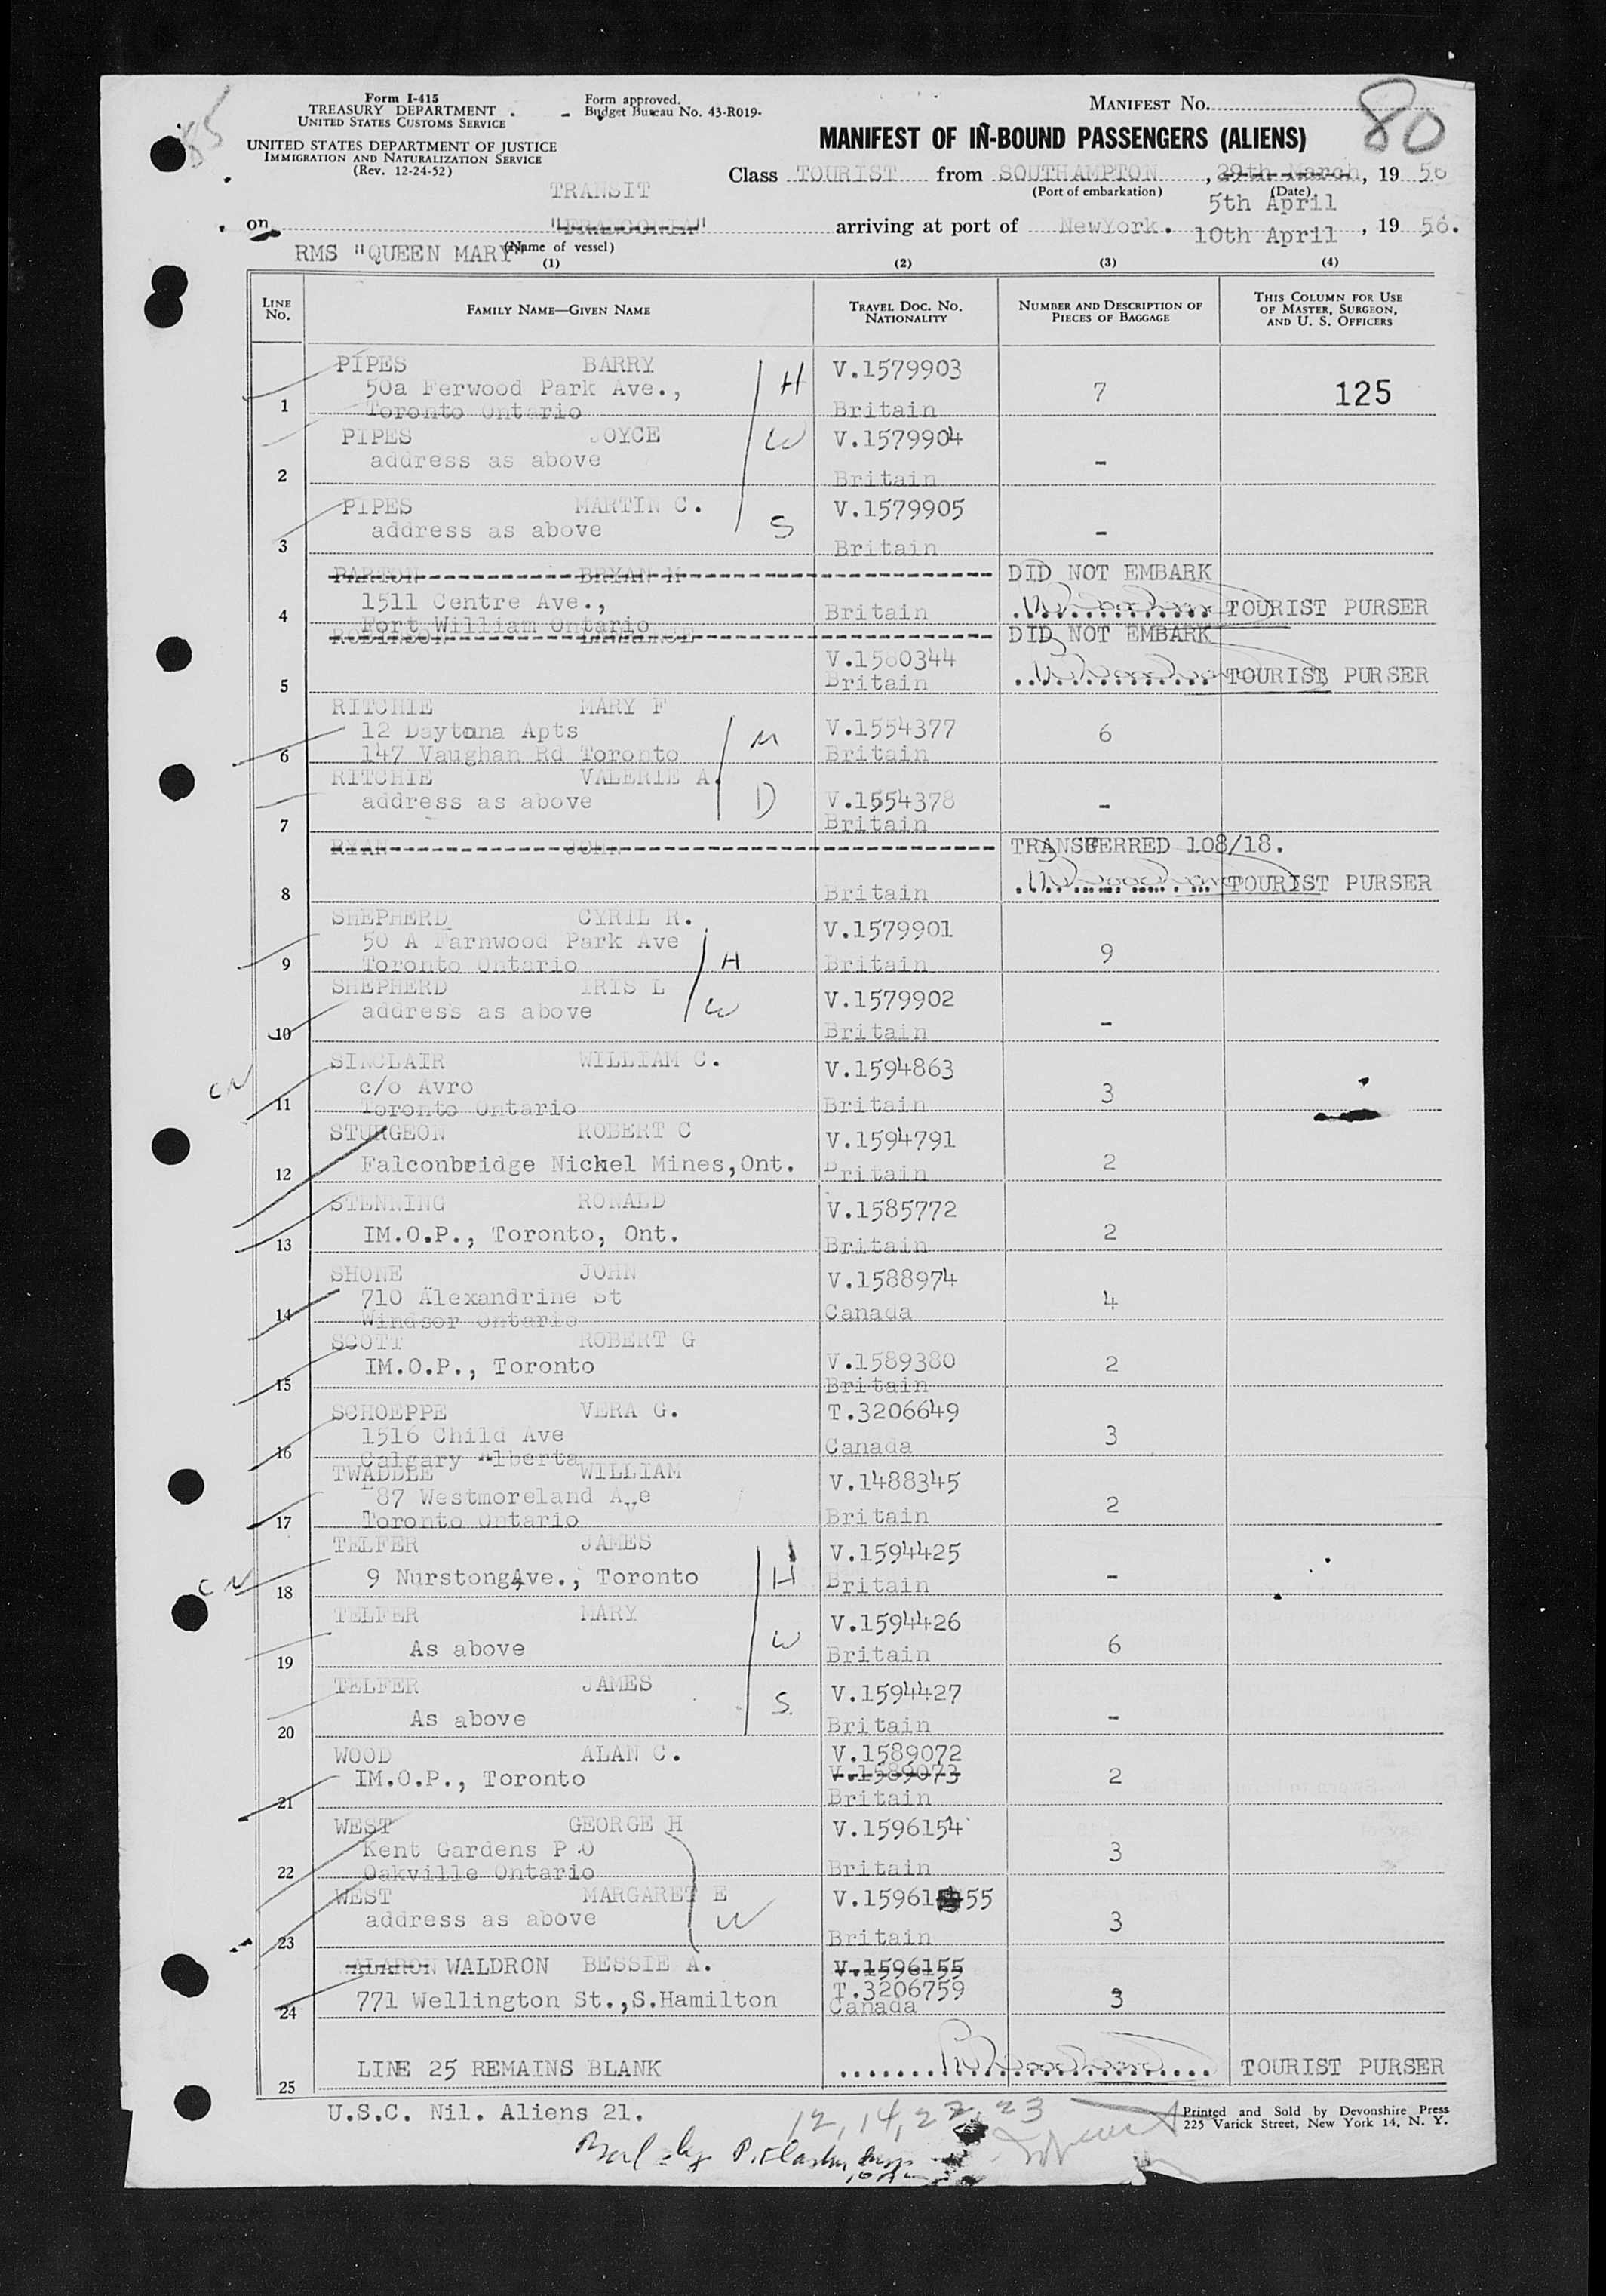 Form I-415
TREASURY DEPARTMENT
UNITED STATES CUSTOMS SERVICE
UNITED STATES DEPARTMENT OF JUSTICE
IMMIGRATION AND NATURALIZATION SERVICE
(Rev. 12-24-52)
Form approved.
Budget Bureau No. 43-R019-
85
MANIFEST NO. 80
MANIFEST OF IN-BOUND PASSENGERS (ALIENS)
Class TOURIST from SOUTHAMPTON, 29th March, 19 56
(Port of embarkation) (Date)
5th April
TRANSIT
on "FRANCONIA" arriving at port of NewYork. 10th April, 19 56.
RMS "QUEEN MARY" (Name of vessel)
(1) (2) (3) (4)
LINE NO.
FAMILY NAME—GIVEN NAME
TRAVEL DOC. NO. NATIONALITY
NUMBER AND DESCRIPTION OF PIECES OF BAGGAGE
THIS COLUMN FOR USE OF MASTER, SURGEON, AND U. S. OFFICERS
PIPES BARRY H V.1579903
50a Ferwood Park Ave., 7 125
1 Toronto Ontario Britain
PIPES JOYCE W V.1579904
address as above -
2 Britain
PIPES MARTIN C. V.1579905
address as above S -
3 Britain
PARTON BRYAN M DID NOT EMBARK
1511 Centre Ave., Britain TOURIST PURSER
4 Fort William Ontario
ROBINSON LAWRENCE DID NOT EMBARK
V.1580344
5 Britain TOURIST PURSER
RITCHIE MARY F
12 Daytona Apts M V.1554377 6
6 147 Vaughan Rd Toronto Britain
RITCHIE VALERIE A.
address as above D V.1554378 -
7 Britain
RYAN JOHN TRANSFERRED 108/18.
8 Britain TOURIST PURSER
SHEPHERD CYRIL R. V.1579901
50 A Farnwood Park Ave 9
9 Toronto Ontario H Britain
SHEPHERD IRIS L V.1579902
address as above W -
10 Britain
SINCLAIR WILLIAM C. V.1594863
CN c/o Avro 3
11 Toronto Ontario Britain
STURGEON ROBERT C V.1594791
12 Falconbridge Nickel Mines,Ont. Britain 2
STENNING RONALD V.1585772
IM.O.P., Toronto, Ont. 2
13 Britain
SHONE JOHN V.1588974
710 Alexandrine St 4
14 Windsor Ontario Canada
SCOTT ROBERT G
IM.O.P., Toronto V.1589380 2
15 Britain
SCHOEPPE VERA G. T.3206649
1516 Child Ave 3
16 Calgary Alberta Canada
TWADDLE WILLIAM V.1488345
87 Westmoreland Ave 2
17 Toronto Ontario Britain
TELFER JAMES V.1594425
CN 9 Nurstong Ave., Toronto H -
18 Britain
TELFER MARY V.1594426
As above W 6
19 Britain
TELFER JAMES V.1594427
As above S. -
20 Britain
WOOD ALAN C. V.1589072
IM.O.P., Toronto V.1589073 2
21 Britain
WEST GEORGE H V.1596154
Kent Gardens P.O 3
22 Oakville Ontario Britain
WEST MARGARET E V.15961 55
address as above W 3
23 Britain
ALARON WALDRON BESSIE A. V.1596155
771 Wellington St.,S.Hamilton T.3206759 3
24 Canada
LINE 25 REMAINS BLANK TOURIST PURSER
25
U.S.C. Nil. Aliens 21.
12, 14, 22, 23
Printed and Sold by Devonshire Press
225 Varick Street, New York 14, N. Y.